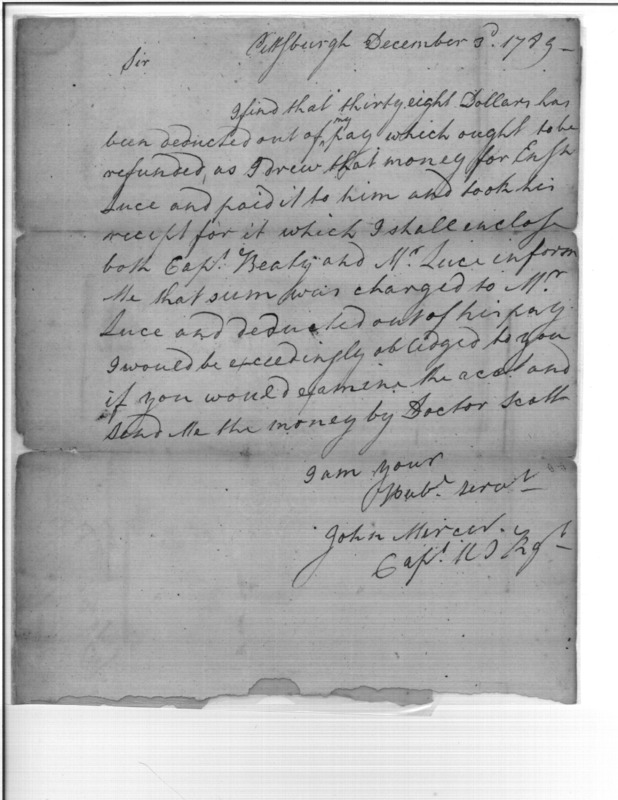 Pittsburgh December 3d. 1789 –
Sir
I find that thirty eight Dollars has
been deducted out of my pay which ought to be
refunded, as I drew that money for Ensn
Luce and paid it to him and took his
receipt for it which I shall enclose
both Capt. Beaty and Mr. Luce inform
Me that sum was charged to Mr.
Luce and deducted out of his pay
I would be exceedingly obliedged to you
if you would examine the acct. and
send Me the money by Doctor Scott
I am your
Hube. servt
John Mercer.
Capt. N J Regt